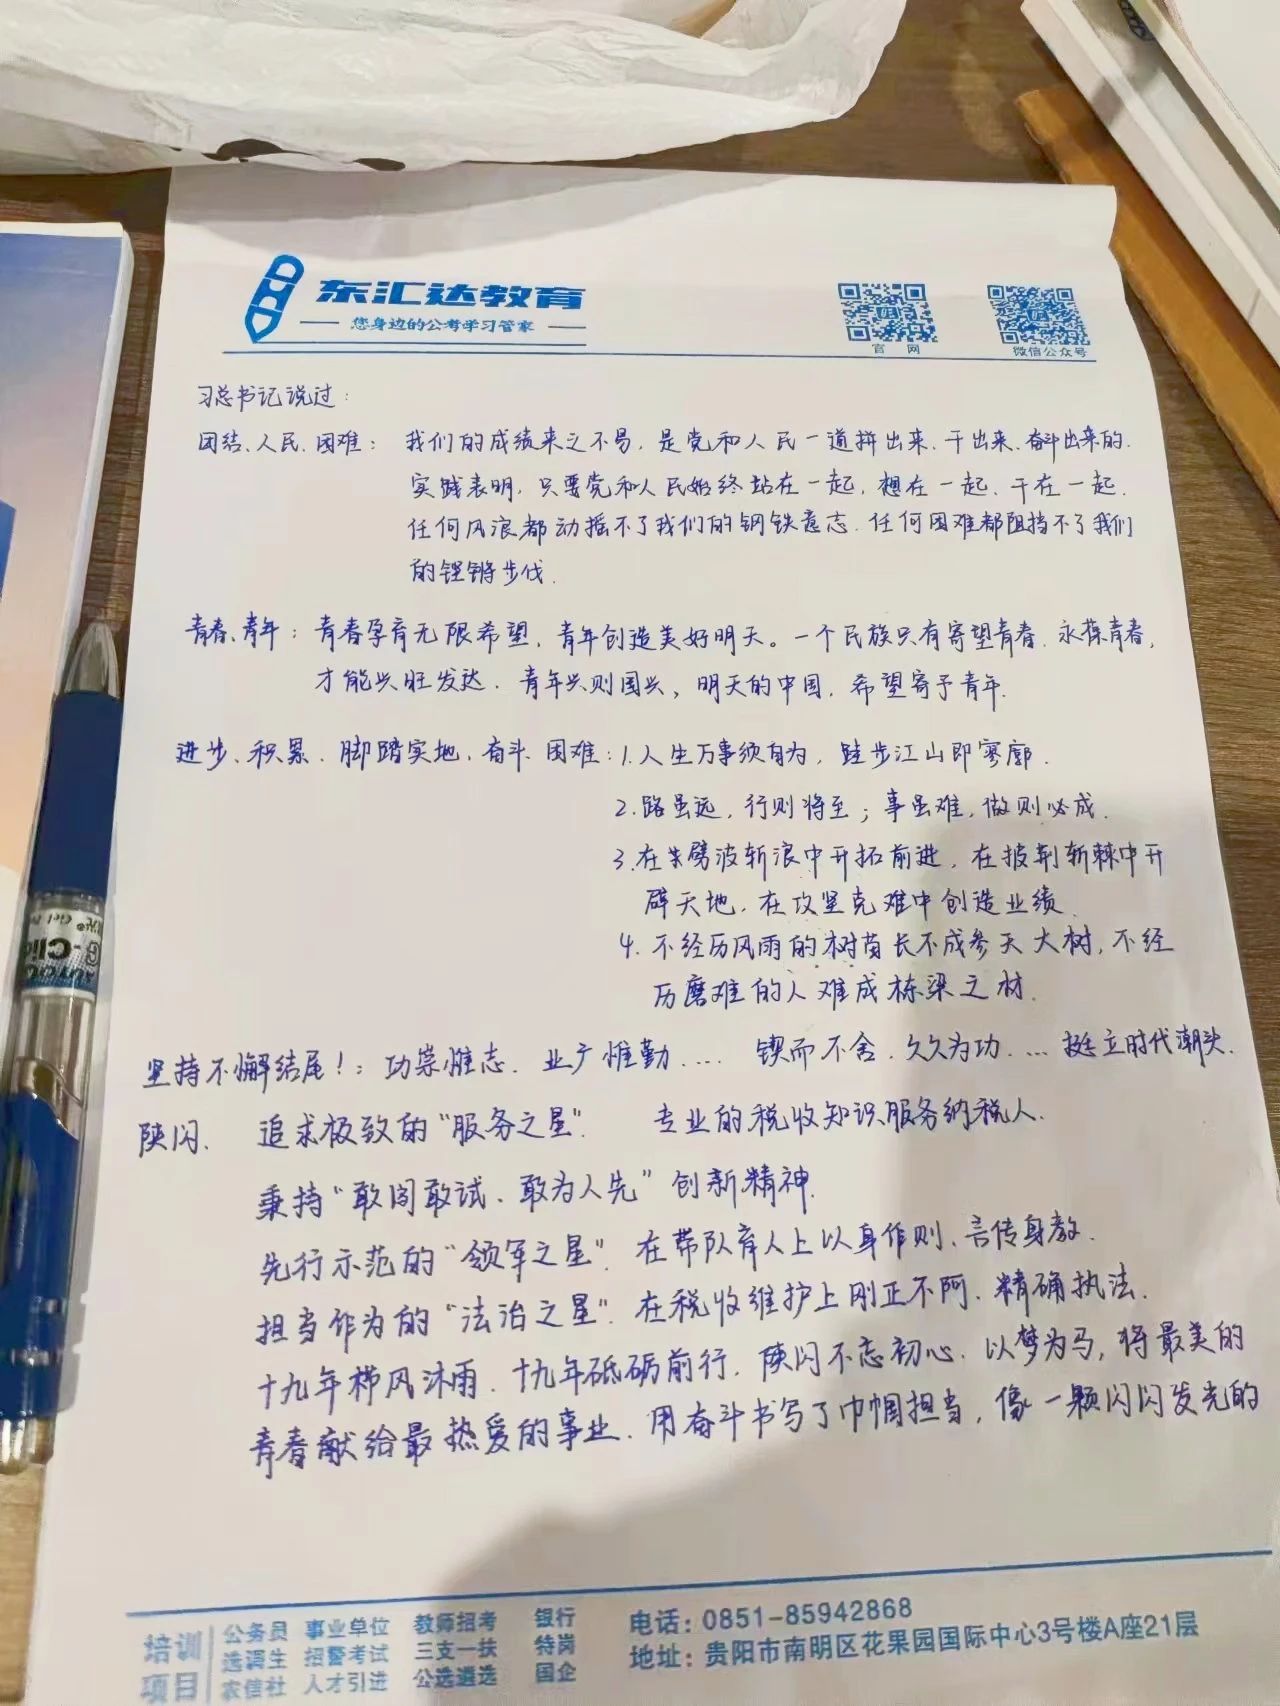 东汇达教育
您身边的公考学习管家
官 网
微信公众号
习总书记说过:
团结、人民、困难: 我们的成绩来之不易,是党和人民一道拼出来、干出来、奋斗出来的.
实践表明,只要党和人民始终站在一起,想在一起、干在一起.
任何风浪都动摇不了我们的钢铁意志.任何困难都阻挡不了我们
的铿锵步伐.
青春、青年: 青春孕育无限希望,青年创造美好明天。一个民族只有寄望青春、永葆青春,
才能兴旺发达.青年兴则国兴,明天的中国,希望寄予青年.
进步、积累、脚踏实地、奋斗、困难: 1.人生万事须自为,跬步江山即寥廓.
2.路虽远,行则将至;事虽难,做则必成.
3.在劈波斩浪中开拓前进,在披荆斩棘中开
辟天地,在攻坚克难中创造业绩.
4.不经历风雨的树苗长不成参天大树,不经
历磨难的人难成栋梁之材.
坚持不懈结尾!: 功崇惟志、业广惟勤.... 锲而不舍、久久为功.... 挺立时代潮头.
陕闪. 追求极致的“服务之星”. 专业的税收知识服务纳税人.
秉持“敢闯敢试、敢为人先”创新精神.
先行示范的“领军之星”.在带队育人上以身作则、言传身教.
担当作为的“法治之星”.在税收维护上刚正不阿、精确执法.
十九年栉风沐雨.十九年砥砺前行.陕闪不忘初心.以梦为马,将最美的
青春献给最热爱的事业.用奋斗书写了巾帼担当,像一颗闪闪发光的
培训项目
公务员 事业单位 教师招考 银行
选调生 招警考试 三支一扶 特岗
农信社 人才引进 公选遴选 国企
电话: 0851-85942868
地址: 贵阳市南明区花果园国际中心3号楼A座21层